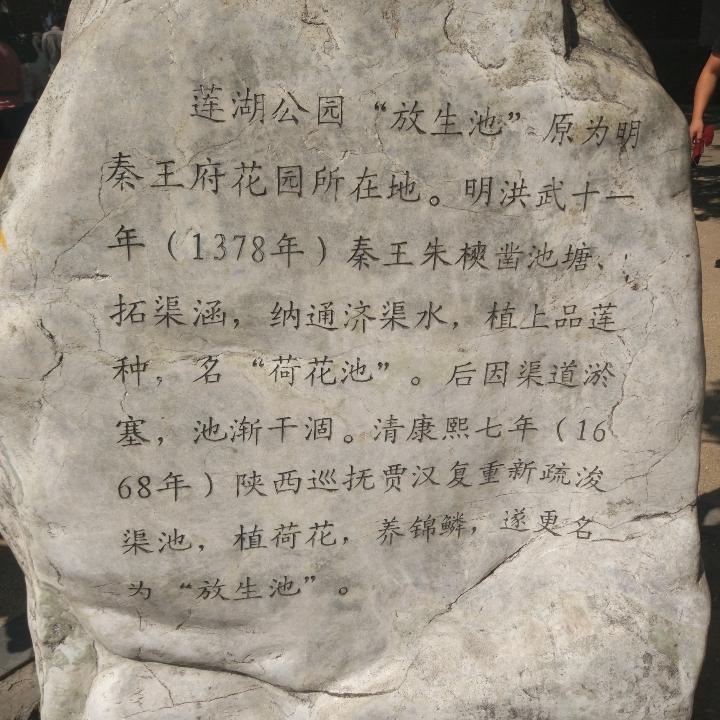 莲湖公园“放生池”原为明
秦王府花园所在地。明洪武十一
年（1378年）秦王朱樉凿池塘、
拓渠涵，纳通济渠水，植上品莲
种，名“荷花池”。后因渠道淤
塞，池渐干涸。清康熙七年（16
68年）陕西巡抚贾汉复重新疏浚
渠池，植荷花，养锦鳞，遂更名
为“放生池”。